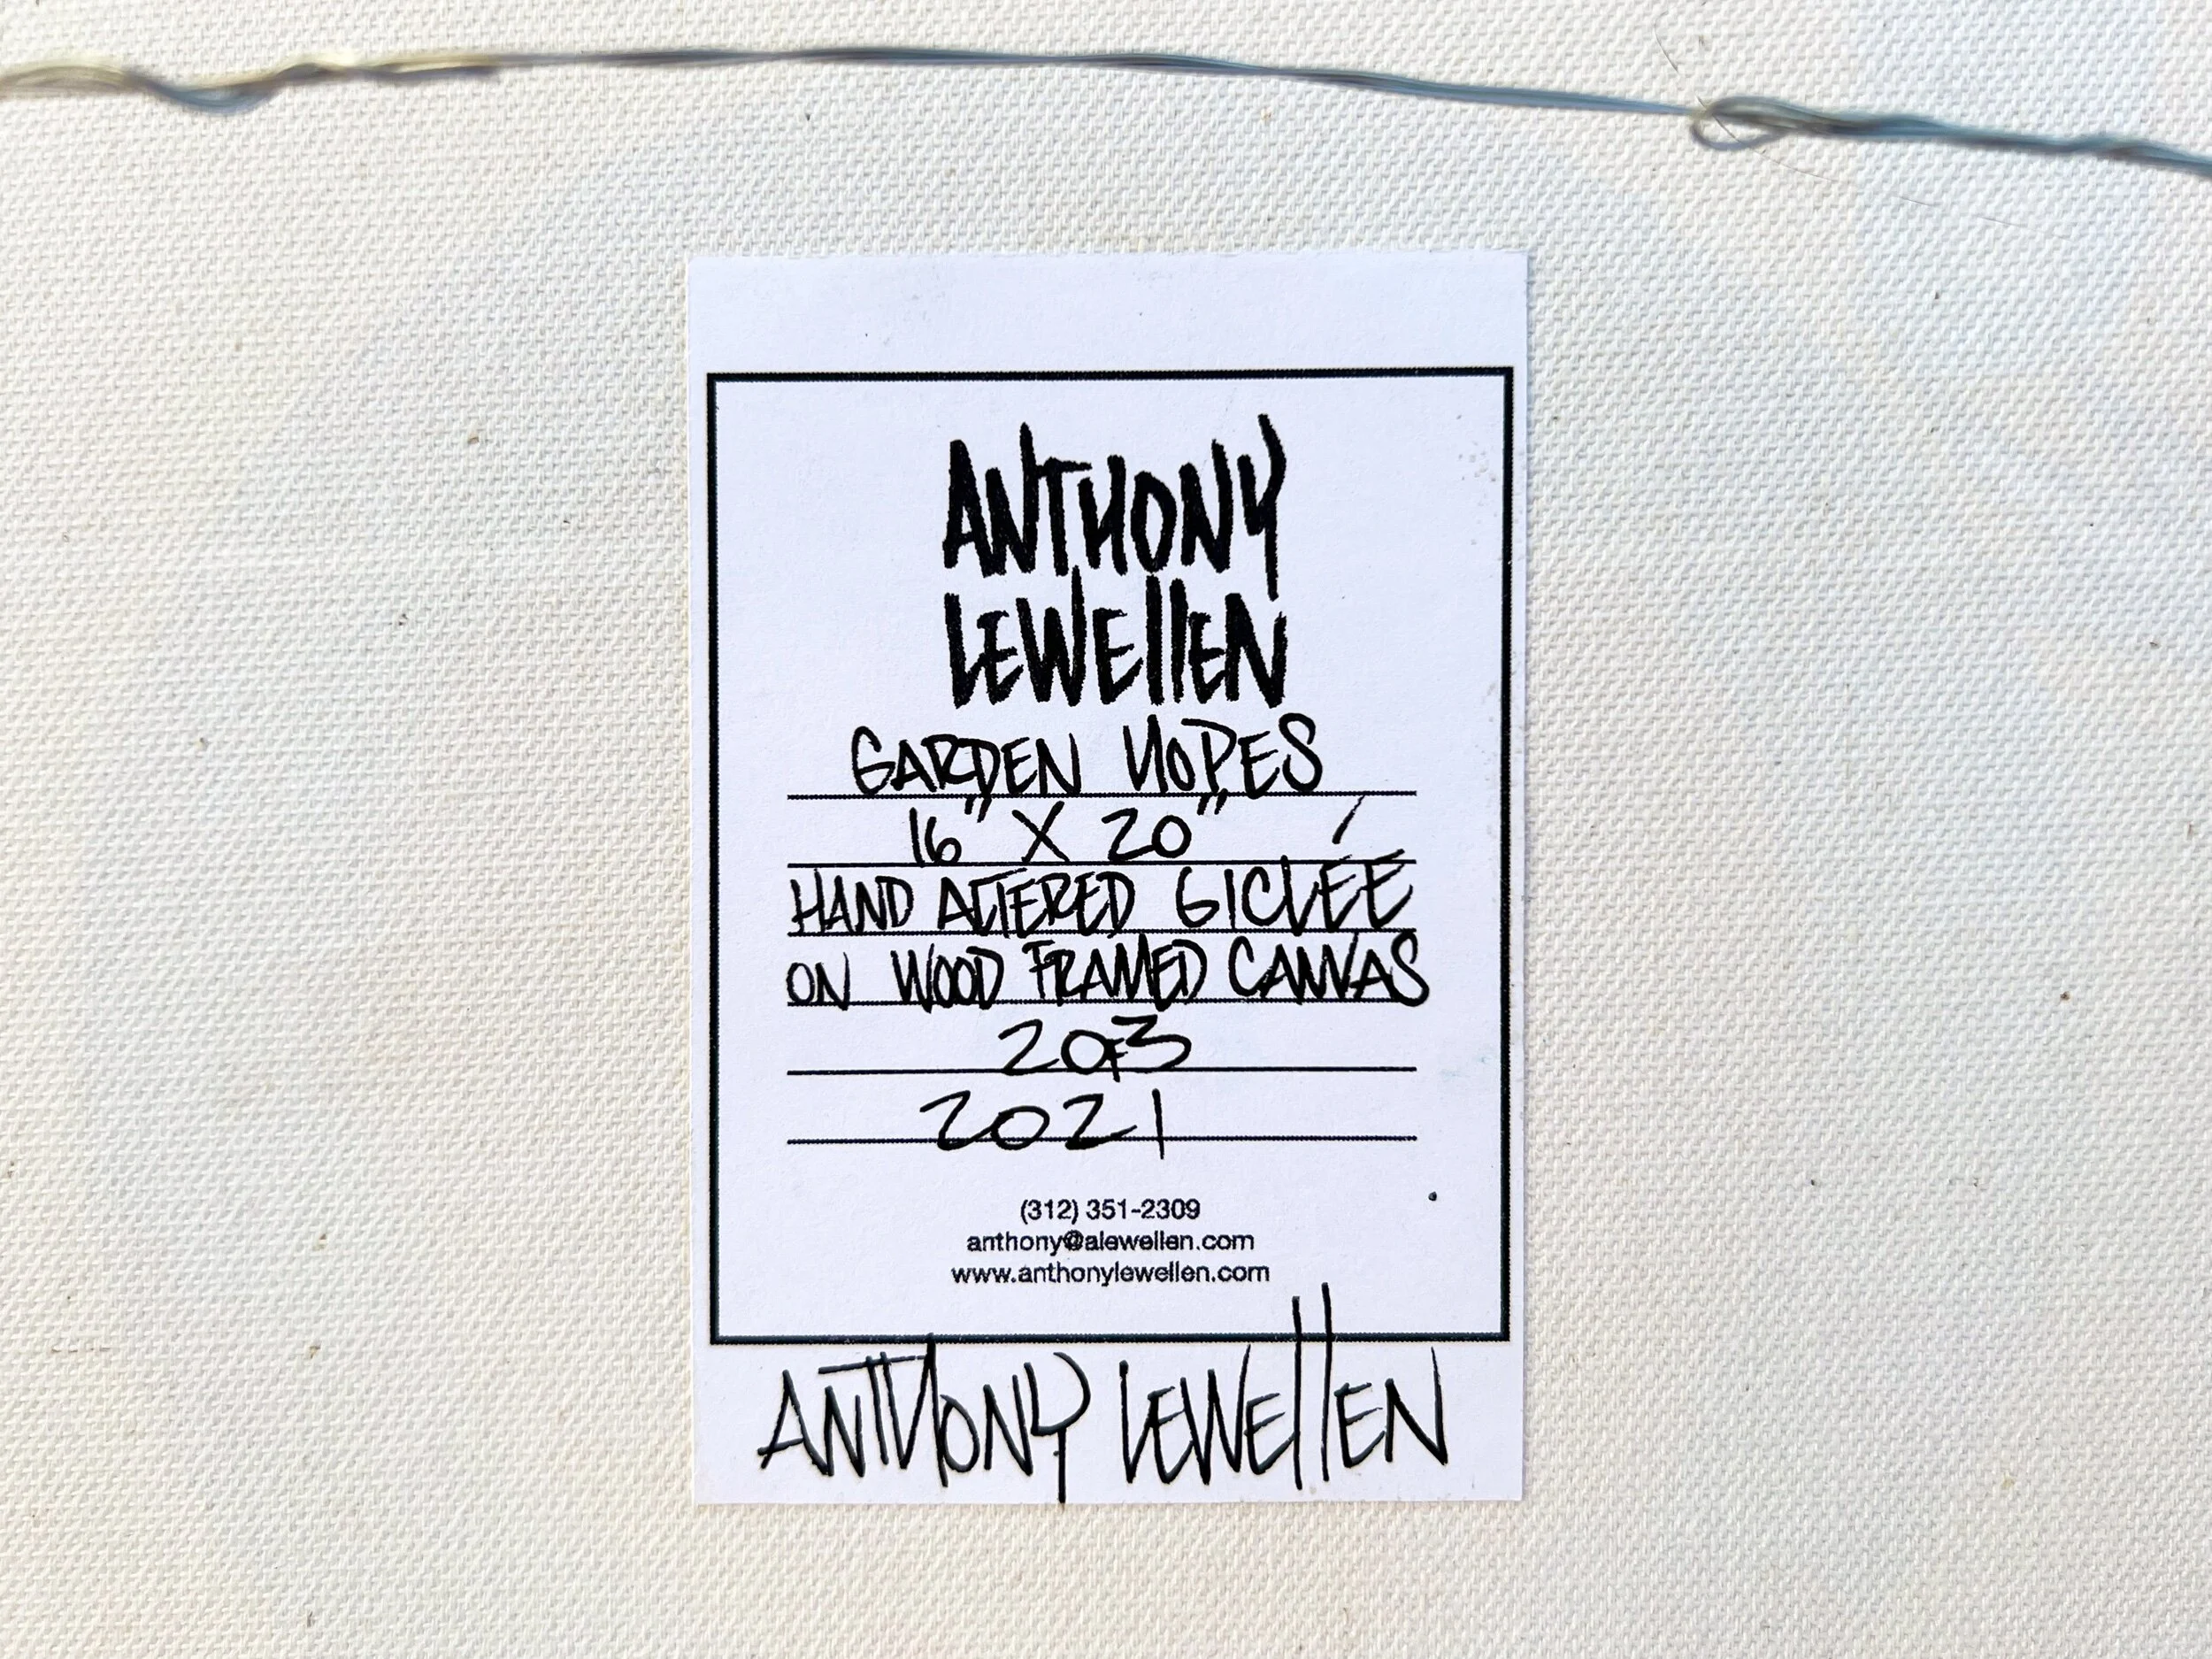 ANTHONY
LEWEllEN
GARDEN HOPES
16" X 20"
HAND ALTERED GICLÉE
ON WOOD FRAMED CANVAS
2 OF 3
2021
(312) 351-2309
anthony@alewellen.com
www.anthonylewellen.com
ANTHONY LEWEllEN